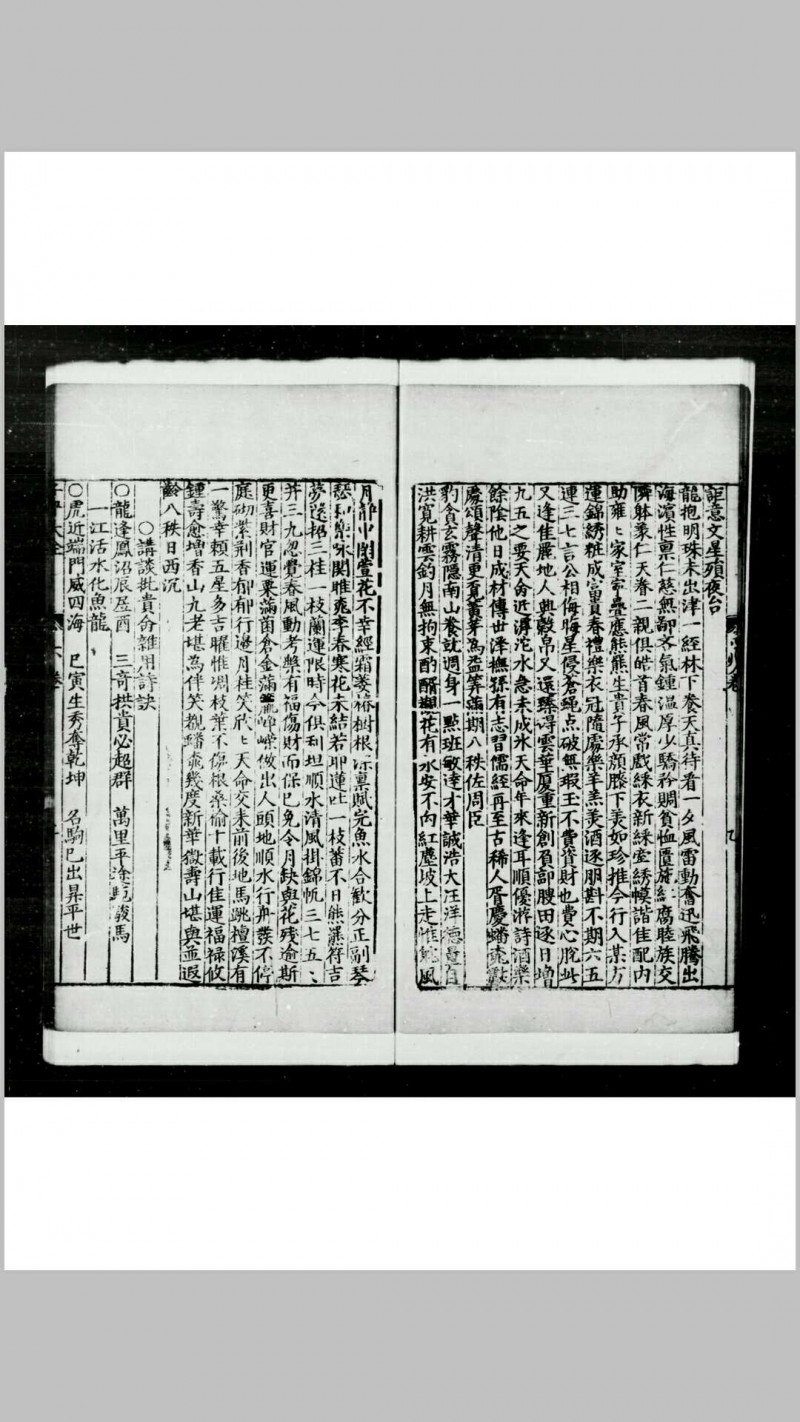 詎意文星殞夜台
龍抱明珠未出津一經林下養天真待看一夕風雷動奮迅飛騰出
海濵性禀仁慈無鄙吝氣鍾温厚少驕矜賙貧恤匱旌紅腐睦族交
隣躰聚仁天眷二親俱皓首春風常戲綵衣新綵室綉幙諧佳配内
助雍〻家室宜疊應熊熊生貴子承顔膝下美如珍推今行入某方
運錦綉粧成富貴春禮樂衣冠隨處樂羊羔美酒逐朋斟不期六五
連三七言公相侮晦星侵蒼蝇点破無瑕玉不費貲財也費心脫此
又逢佳麗地人興轂帛又還臻得雲華厦重新創負郭腴田逐日增
九五之耍天命近滹沱水急未成氷天命年來逢耳順優游詩酒樂
餘陰他日成材傳世澤撫猻有志習儒經再至古稀人胥慶蟠桃獻
慶頌聲清更覓蓍茅為益筭滿期八秩佐周臣
豹貪玄霧隱南山養就週身一點班敏達才華誠浩大汪洋德量自
洪寛耕雲釣月無拘束酌醑觀花有水安不向紅塵坡上走惟風
月静中閑萱花不幸經霜萎椿樹根深禀賦完魚水合歡分正副琴
瑟和樂咏関睢雍季春寒花未結若耶蓮吐一枝蕃不日熊羆符吉
夢還招三桂一枝蘭運限時今俱利坦順水清風掛錦帆三七五〻
并三九忽覺春風動考槃有福傷財而保已免令月缺與花殘逾斯
更喜財官運粟滿囷倉金滿崢嶸做出人頭地順水行舟發不停
庭砌紫荆香郁郁行邊月桂笑欣〻天命交来前後地馬跳檀溪有
一驚幸頼五星多吉曜惟凋枝葉不傷根桑榆十載行佳運福禄攸
鍾壽愈增香山九老堪為伴笑覩蟠桃幾度新華嶽壽山堪與並遐
齡八秩日西沉
○講談批貴命雜用詩訣
○龍逢鳳沼辰居酉 三奇拱貴必超群 萬里平途馳義馬
一江活水化魚龍
○虎近端門威四海 巳寅生秀奪乾坤 名駒已出昇平世